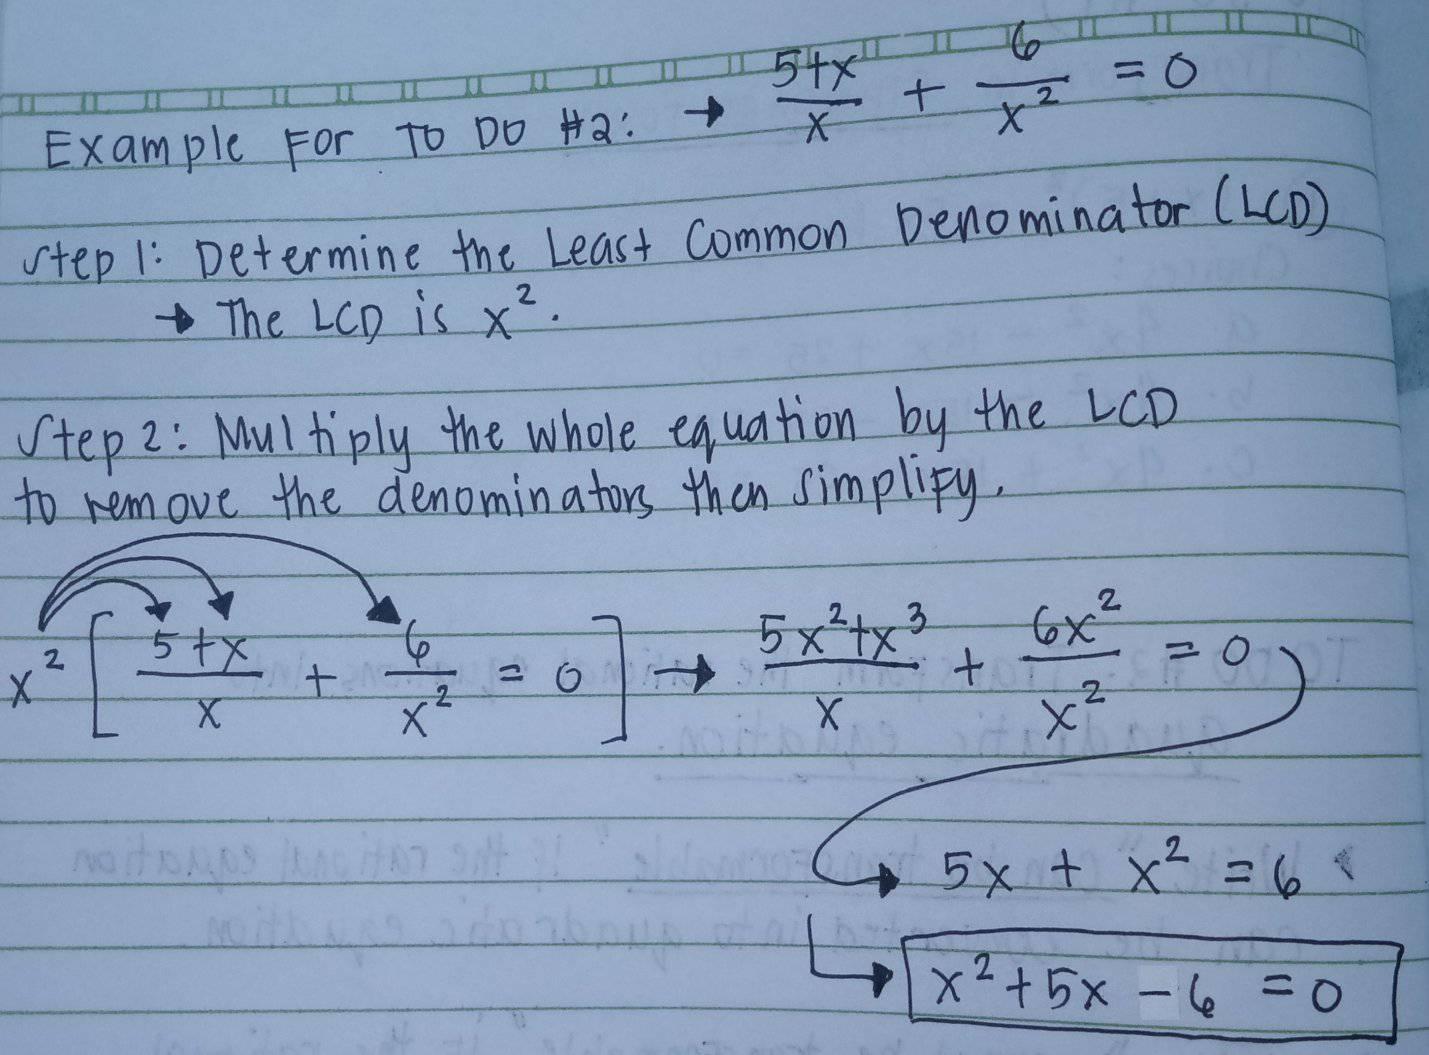 Example For To Do #2: → (5+x)/x + 6/x² = 0
Step 1: Determine the Least Common Denominator (LCD)
→ The LCD is x².
Step 2: Multiply the whole equation by the LCD
to remove the denominators then simplify.
x² [ (5+x)/x + 6/x² = 0 ] → (5x²+x³)/x + 6x²/x² = 0
5x + x² = 6
x² + 5x - 6 = 0